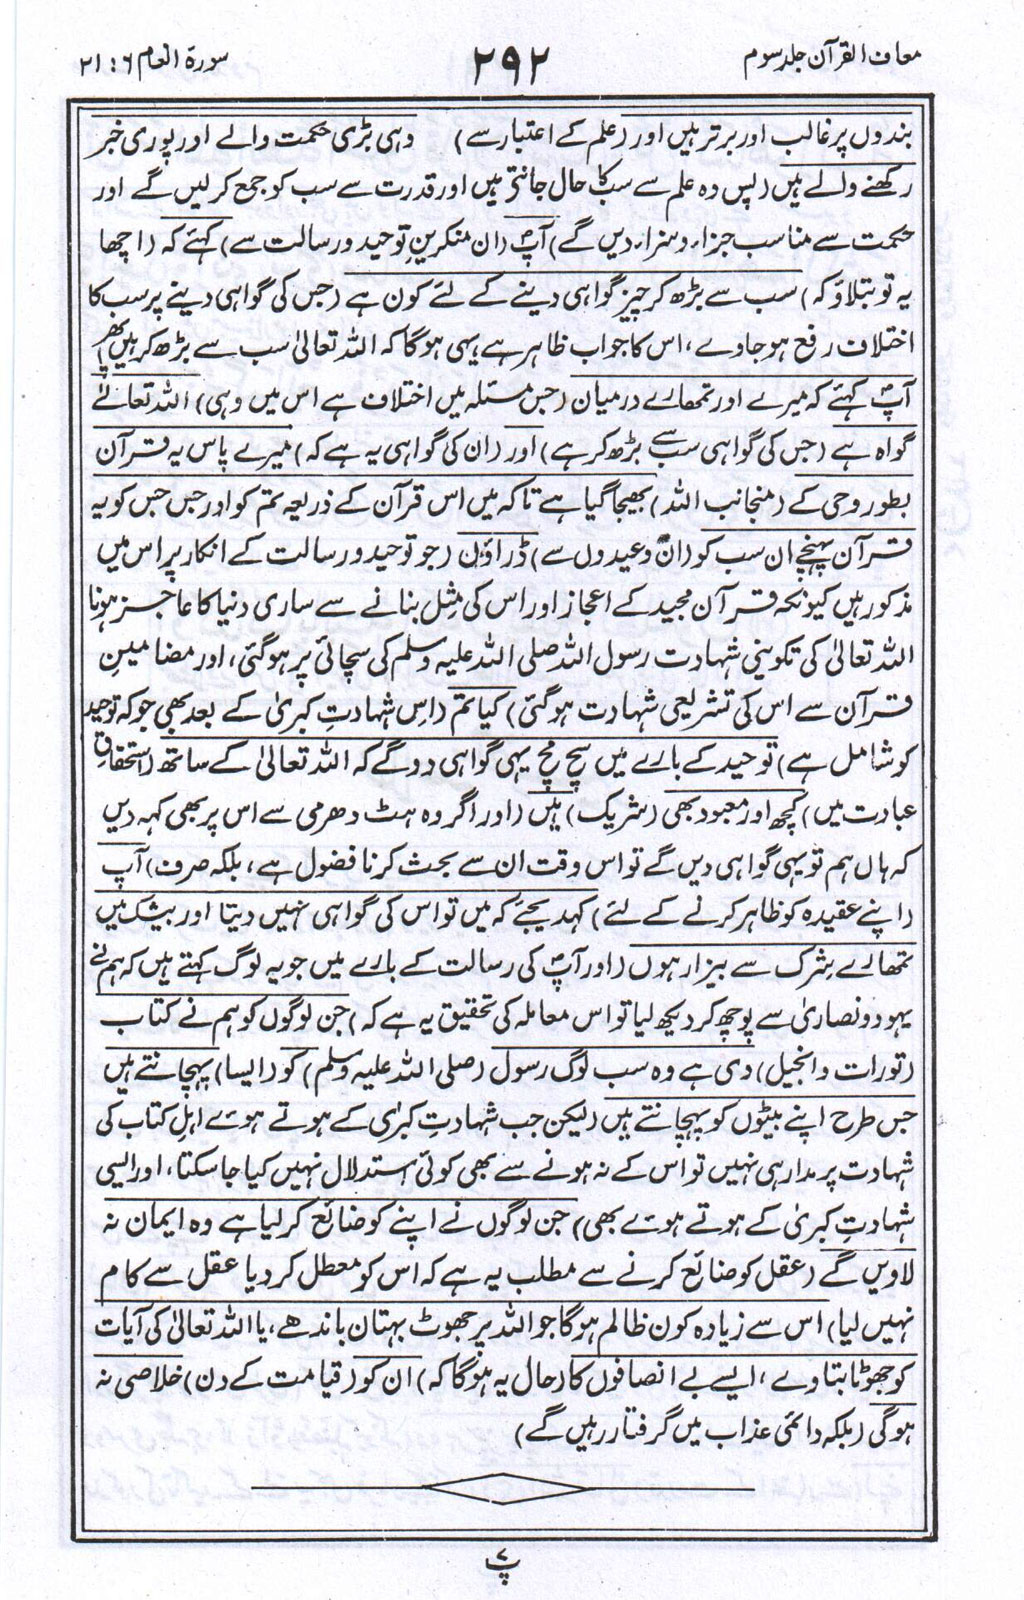 معارف القرآن جلد سوم
۲۹۲
سورۃ انعام ۶ : ۲۱
بندوں پر غالب اور برتر ہیں اور (علم کے اعتبار سے) وہی بڑی حکمت والے اور پوری خبر
رکھنے والے ہیں (پس وہ علم سے سب کا حال جانتے ہیں اور قدرت سے سب کو جمع کر لیں گے اور
حکمت سے مناسب جزاء و سزاء دیں گے) آپؐ (ان منکرینِ توحید و رسالت سے) کہئے کہ (اچھا
یہ تو بتلاؤ کہ) سب سے بڑھ کر چیز گواہی دینے کے لئے کون ہے (جس کی گواہی دینے پر سب کا
اختلاف رفع ہو جاوے، اس کا جواب ظاہر ہے یہی ہوگا کہ اللہ تعالیٰ سب سے بڑھ کر ہیں پھر)
آپؐ کہئے کہ میرے اور تمھارے درمیان (جس مسئلہ میں اختلاف ہے اس میں وہی) اللہ تعالےٰ
گواہ ہے (جس کی گواہی سب سے بڑھ کر ہے) اور (ان کی گواہی یہ ہے کہ) میرے پاس یہ قرآن
بطور وحی کے (منجانب اللہ) بھیجا گیا ہے تاکہ میں اس قرآن کے ذریعہ تم کو اور جس جس کو یہ
قرآن پہنچے ان سب کو (ان وعیدوں سے) ڈراؤں (جو توحید و رسالت کے انکار پر اس میں
مذکور ہیں کیونکہ قرآن مجید کے اعجاز اور اس کی مثل بنانے سے ساری دنیا کا عاجز ہونا
اللہ تعالیٰ کی تکوینی شہادت رسول اللہ صلی اللہ علیہ وسلم کی سچائی پر ہو گئی، اور مضامینِ
قرآن سے اس کی تشریعی شہادت ہو گئی) کیا تم (اس شہادتِ کبریٰ کے بعد بھی جو کہ توحید
کو شامل ہے) توحید کے بارے میں سچ مچ یہی گواہی دو گے کہ اللہ تعالیٰ کے ساتھ (استحقاقِ
عبادت میں) کچھ اور معبود بھی (شریک) ہیں (اور اگر وہ ہٹ دھرمی سے اس پر بھی کہہ دیں
کہ ہاں ہم تو یہی گواہی دیں گے تو اس وقت ان سے بحث کرنا فضول ہے، بلکہ صرف) آپ
(اپنے عقیدہ کو ظاہر کرنے کے لئے) کہہ دیجئے کہ میں تو اس کی گواہی نہیں دیتا اور بیشک میں
تمھارے شرک سے بیزار ہوں (اور آپؐ کی رسالت کے بارے میں جو یہ لوگ کہتے ہیں کہ ہم نے
یہود و نصاریٰ سے پوچھ کر دیکھ لیا تو اس معاملہ کی تحقیق یہ ہے کہ) جن لوگوں کو ہم نے کتاب
(تورات و انجیل) دی ہے وہ سب لوگ رسول (صلی اللہ علیہ وسلم) کو (ایسا) پہچانتے ہیں
جس طرح اپنے بیٹوں کو پہچانتے ہیں (لیکن جب شہادتِ کبریٰ کے ہوتے ہوئے اہلِ کتاب کی
شہادت پر مدار ہی نہیں تو اس کے نہ ہونے سے بھی کوئی استدلال نہیں کیا جا سکتا، اور ایسی
شہادتِ کبریٰ کے ہوتے ہوئے بھی) جن لوگوں نے اپنے کو ضائع کر لیا ہے وہ ایمان نہ
لاویں گے (عقل کو ضائع کرنے سے مطلب یہ ہے کہ اس کو معطل کر دیا عقل سے کام
نہیں لیا) اس سے زیادہ کون ظالم ہوگا جو اللہ پر جھوٹ بہتان باندھے، یا اللہ تعالیٰ کی آیات
کو جھوٹا بتاوے، ایسے بے انصافوں کا (حال یہ ہوگا کہ) ان کو (قیامت کے دن) خلاصی نہ
ہوگی (بلکہ دائمی عذاب میں گرفتار رہیں گے)
پ۷